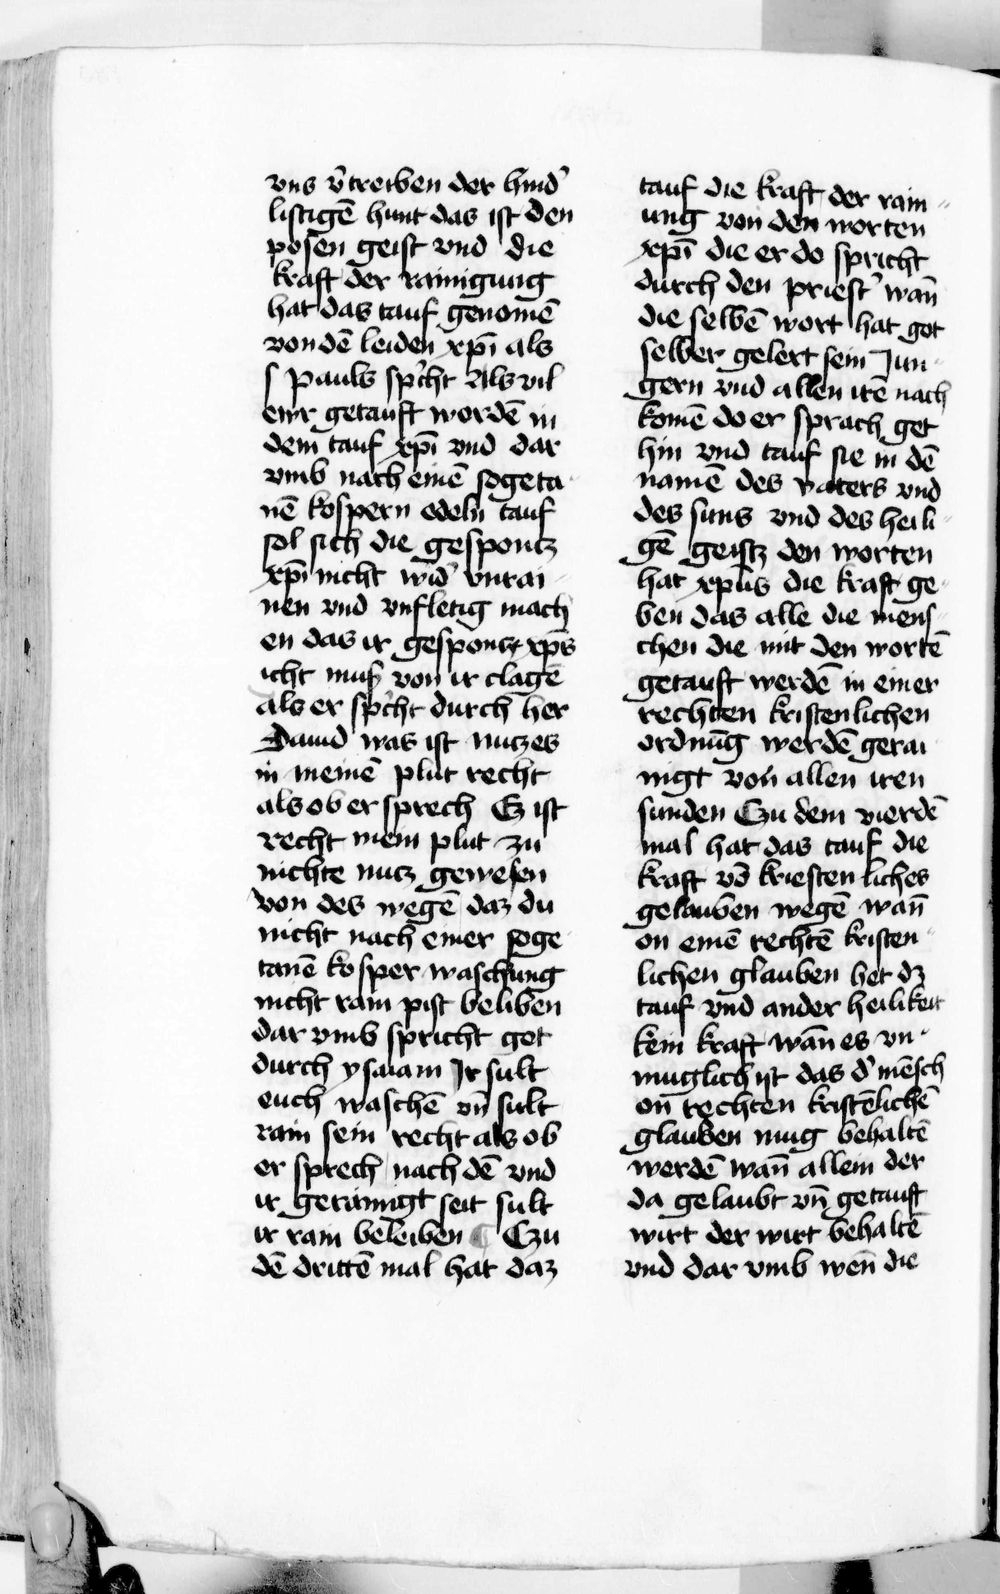 vns v̾treiben der hind̾
listigē hunt das ist den
posen geist vnd die
kraft der rainigung
hat das tauf genomē
von dē leiden xp̄i als
s pauls sp̾cht Als vil
ewr getauft wordē in
dem tauf xp̄i vnd dar
vmb nach einē sogeta
nē kospern edeln tauf
sol sich die gespontz
xp̄i nicht wid̾ vnrai-
nen vnd vnfletig mach
en das ir gespontz xp̄s
icht muß von ir clagē
als er sp̾cht durch her
Dauid was ist nutzes
in meinē plut recht
als ob er sprech Ez ist
recht mein plut zu
nichte nutz gewesen
von des wegē daz du
nicht nach einer soge
tanē kosper waschung
nicht rain pist beliben
dar vmb spricht got
durch ysaiam Ir sult
euch waschē vn̄ sult
rain sein recht als ob
er sprech nach dē vnd
ir gerainigt seit sult
ir rain beleiben Czu
dē drittē mal hat daz
tauf die kraft der rain-
ung von den worten
xp̄i die er do spricht
durch den priest̾ wan̄
die selbē wort hat got
selber gelert sein Jun-
gern vnd allen irē nach
komē do er sprach get
hin vnd tauf sie in dē
namē des vaters vnd
des suns vnd des heili-
gē geistz den worten
hat xp̄us die kraft ge
ben das alle die mens-
chen die mit den wortē
getauft werdē in einer
rechten kristenlichen
ordnūg werdē gerai
nigt von allen iren
sunden Czu dem vierdē
mal hat das tauf die
kraft vō kriesten liches
gelauben wegē wan̄
on einē rechtē kristen-
lichen glauben het dz
tauf vnd ander heilikeit
kein kraft wān es vn-
muglich ist das d̾ mēsch
on̄ rechten kristēlichē
glauben mug behaltē
werdē wan̄ allein der
da gelaubt vn̄ getauft
wirt der wirt behaltē
vnd dar vmb wen̄ die